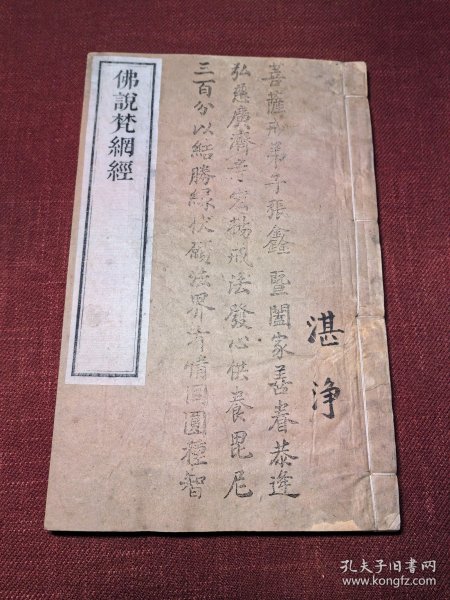 湛淨
菩薩戒弟子張鑫暨闔家善眷恭逢
弘慈廣濟寺宏揚戒法發心供養毘尼
三百分以結勝緣伏願法界有情同圓種智
佛說梵網經
孔夫子旧书网
www.kongfz.com